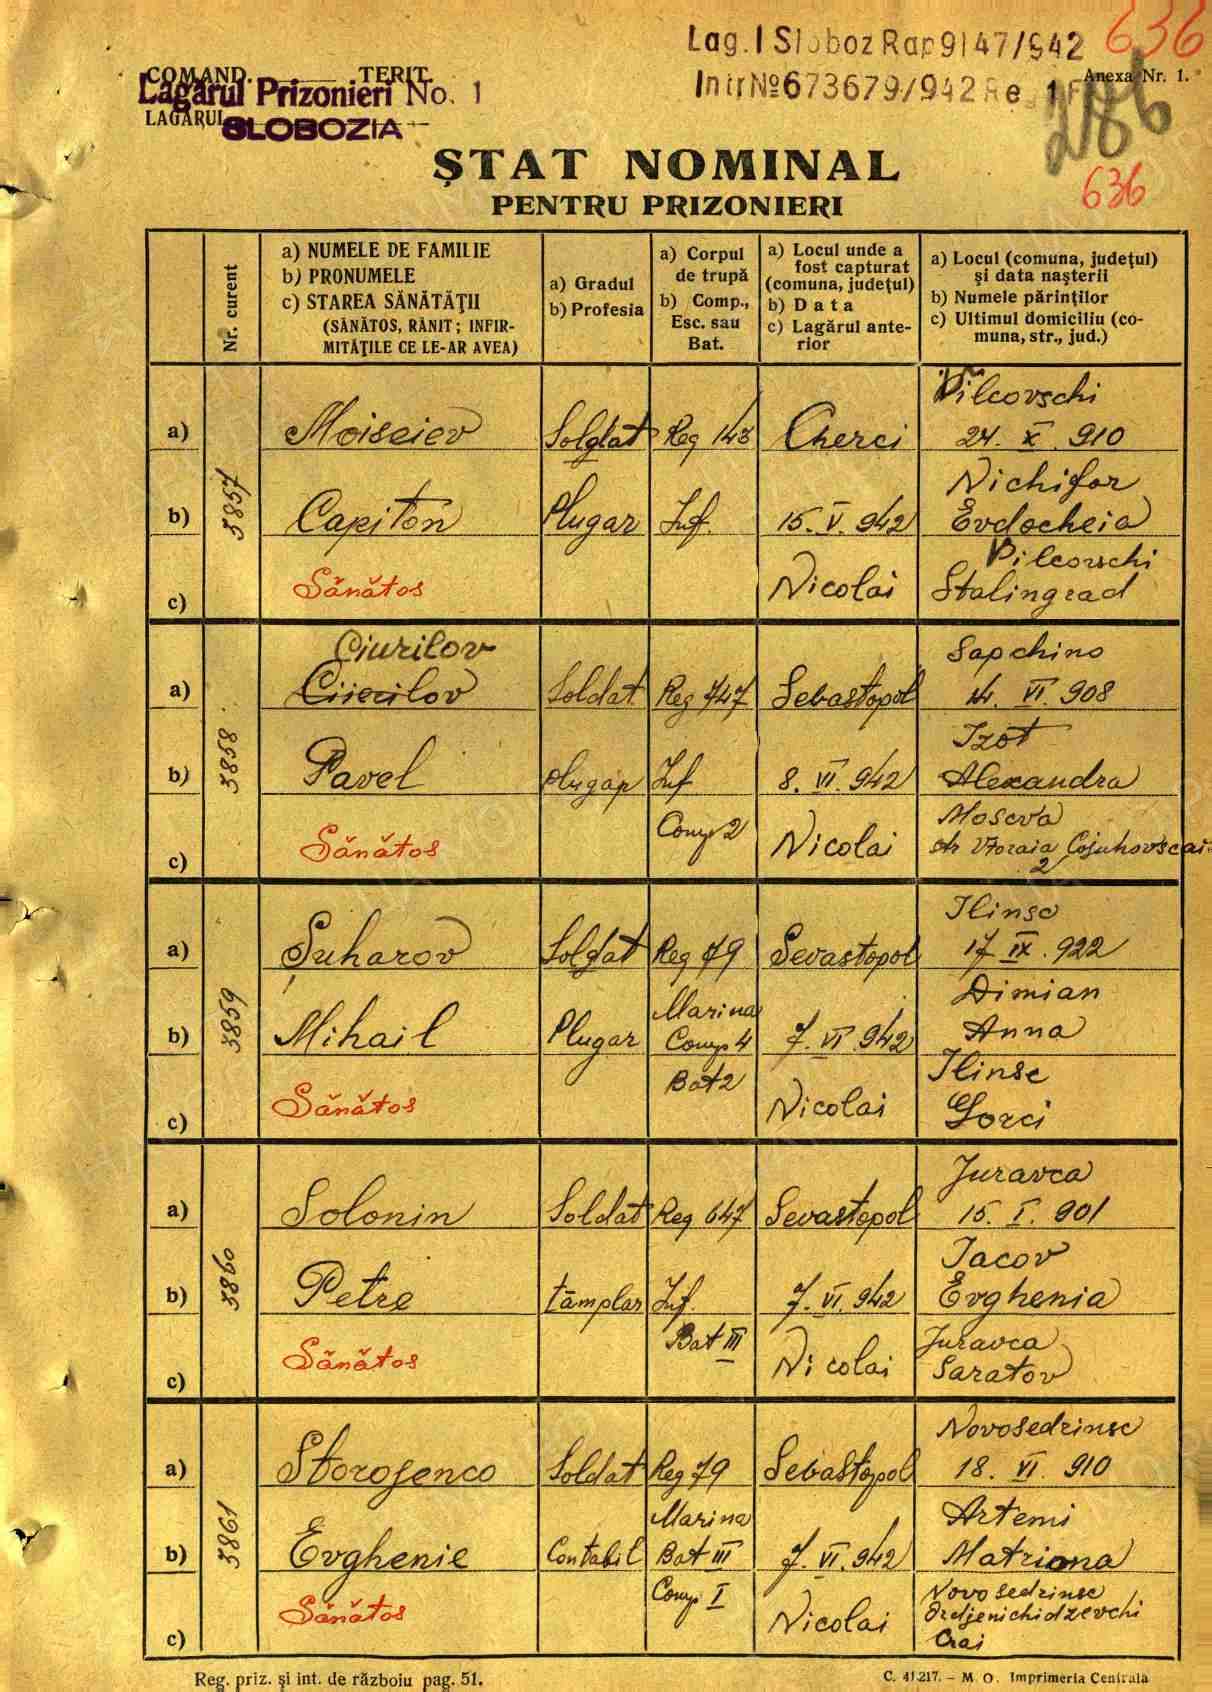 Lag. I Sloboz Rap 9147/942
636
Intr № 673679/942 Re 1 F
COMAND. TERIT.
Anexa Nr. 1.
Lagărul Prizonieri No. 1
LAGĂRUL
SLOBOZIA
286
ȘTAT NOMINAL
636
PENTRU PRIZONIERI
Nr. curent
a) NUMELE DE FAMILIE
b) PRONUMELE
c) STAREA SĂNĂTĂȚII
(SĂNĂTOS, RĂNIT; INFIR-
MITĂȚILE CE LE-AR AVEA)
a) Gradul
b) Profesia
a) Corpul
de trupă
b) Comp.,
Esc. sau
Bat.
a) Locul unde a
fost capturat
(comuna, județul)
b) Data
c) Lagărul ante-
rior
a) Locul (comuna, județul)
și data nașterii
b) Numele părinților
c) Ultimul domiciliu (co-
muna, str., jud.)
3857
a) Moiseiev Soldat Reg 143 Cherci
Pilcovschi
24. X. 910
b) Capiton Plugar Inf. 15. V. 942
Nichifor
Evdocheia
c) Sănătos Nicolai
Pilcovschi
Stalingrad
3858
Ciurilov
a) Ciurilov Soldat Reg 747 Sebastopol
Sapchino
14. VI. 908
b) Pavel plugar Inf 8. VII. 942
Izot
Alexandra
c) Sănătos Comp 2 Nicolai
Moscva
str Vtoraia Cojuhovscaia
2
3859
a) Suharov Soldat Reg 79 Sevastopol
Ilinsc
17 IX. 922
b) Mihail Plugar Marina
Comp 4 7. VI. 942
Dimian
Anna
c) Sănătos Bat 2 Nicolai
Ilinsc
Gorci
3860
a) Solonin Soldat Reg 647 Sevastopol
Juravca
15. I. 901
b) Petre tâmplar Inf. 7. VI. 942
Iacov
Evghenia
c) Sănătos Bat III Nicolai
Juravca
Saratov
3861
a) Storojenco Soldat Reg 79 Sebastopol
Novosedrinsc
18. VI. 910
b) Evghenie Contabil Marina
Bat III 7. VI. 942
Artemi
Matriona
c) Sănătos Comp I Nicolai
Novosedrinsc
Ordjenichidzevchi
Crai
Reg. priz. și int. de războiu pag. 51.
C. 41.217. – M. O. Imprimeria Centrala